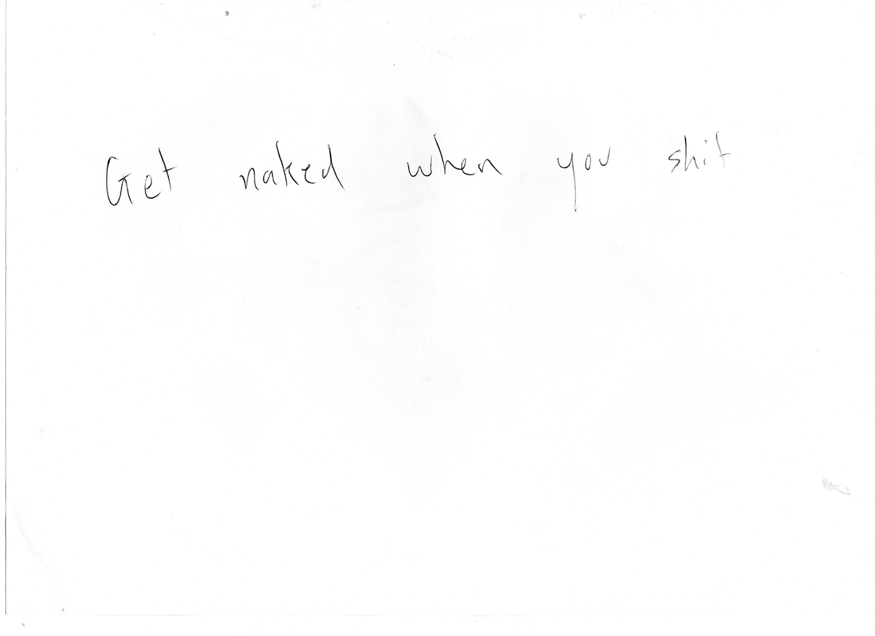 Get naked when you shit